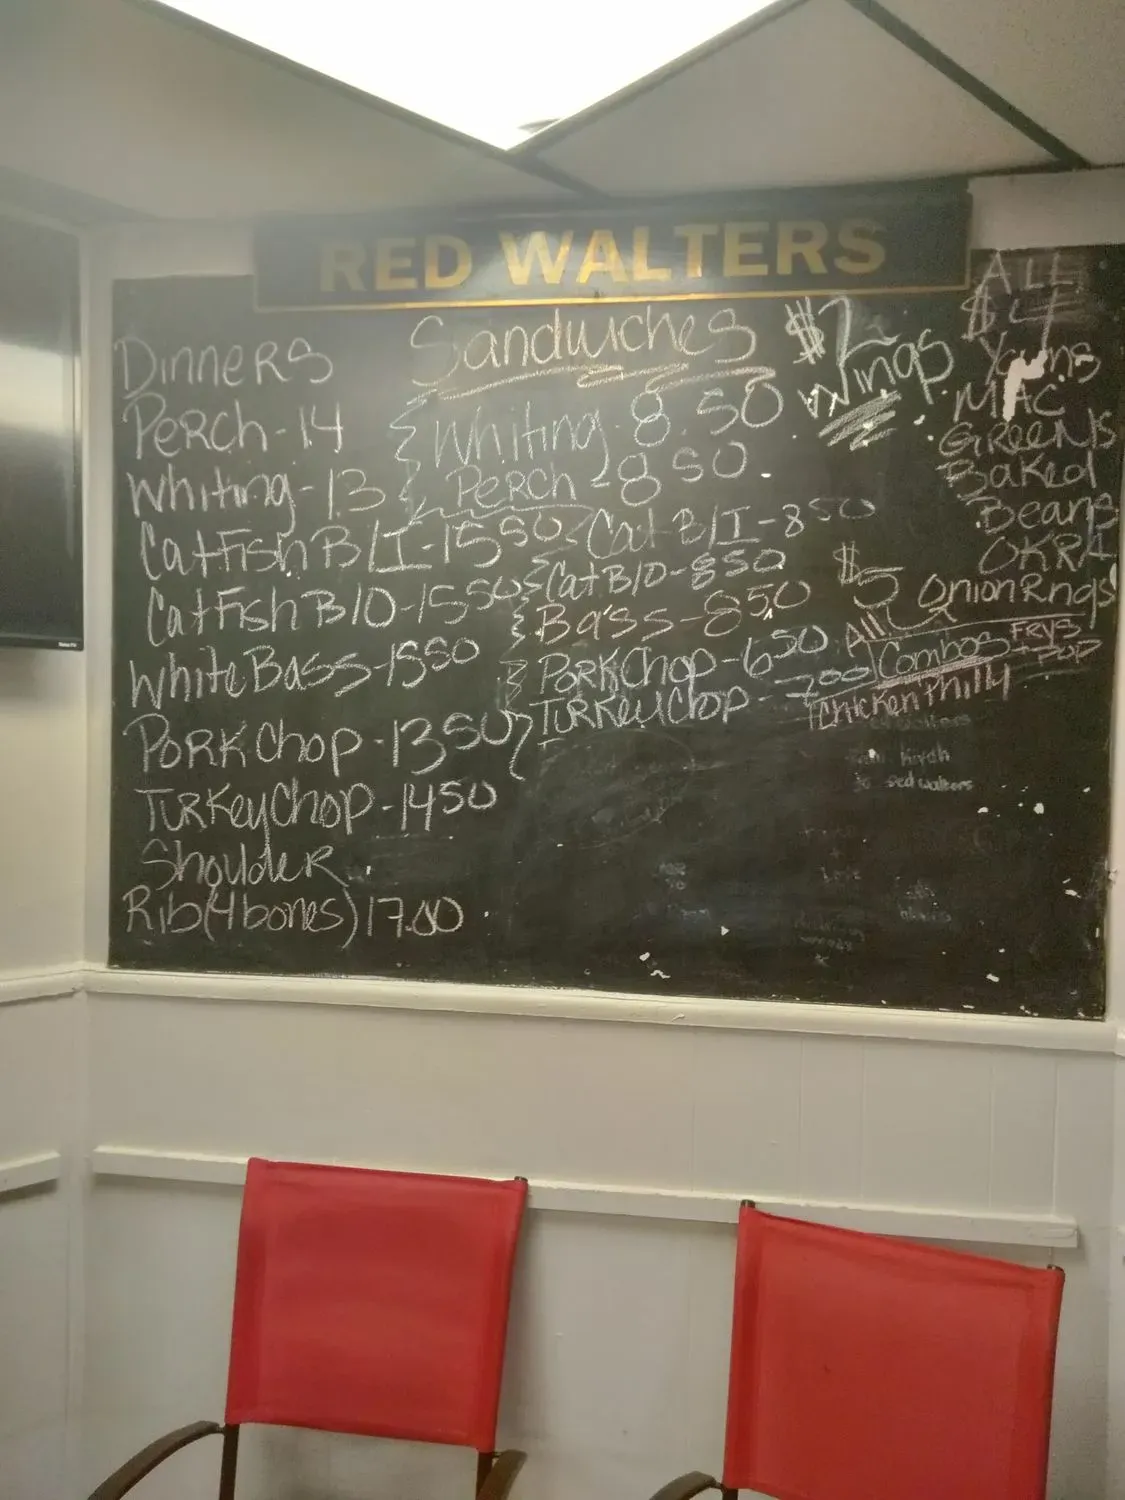 RED WALTERS
Dinners
Perch - 14
Whiting - 13
Catfish B/I - 15 50
Catfish B/O - 15 50
White Bass - 15 50
Pork Chop - 13 50
Turkey Chop - 14 50
Shoulder
Rib (4 bones) 17.00
Sandwiches
Whiting - 8.50
Perch - 8 50
Cat B/I - 8 50
Cat B/O - 8 50
Bass - 8 50
Pork Chop - 6 50
Turkey Chop - 7 00
$2
Wings
ALL
$4
MAC
GREENS
Baked
Beans
OKRA
Onion Rngs
$5 All
Combos Frys + POP
Chicken Philly
red walters